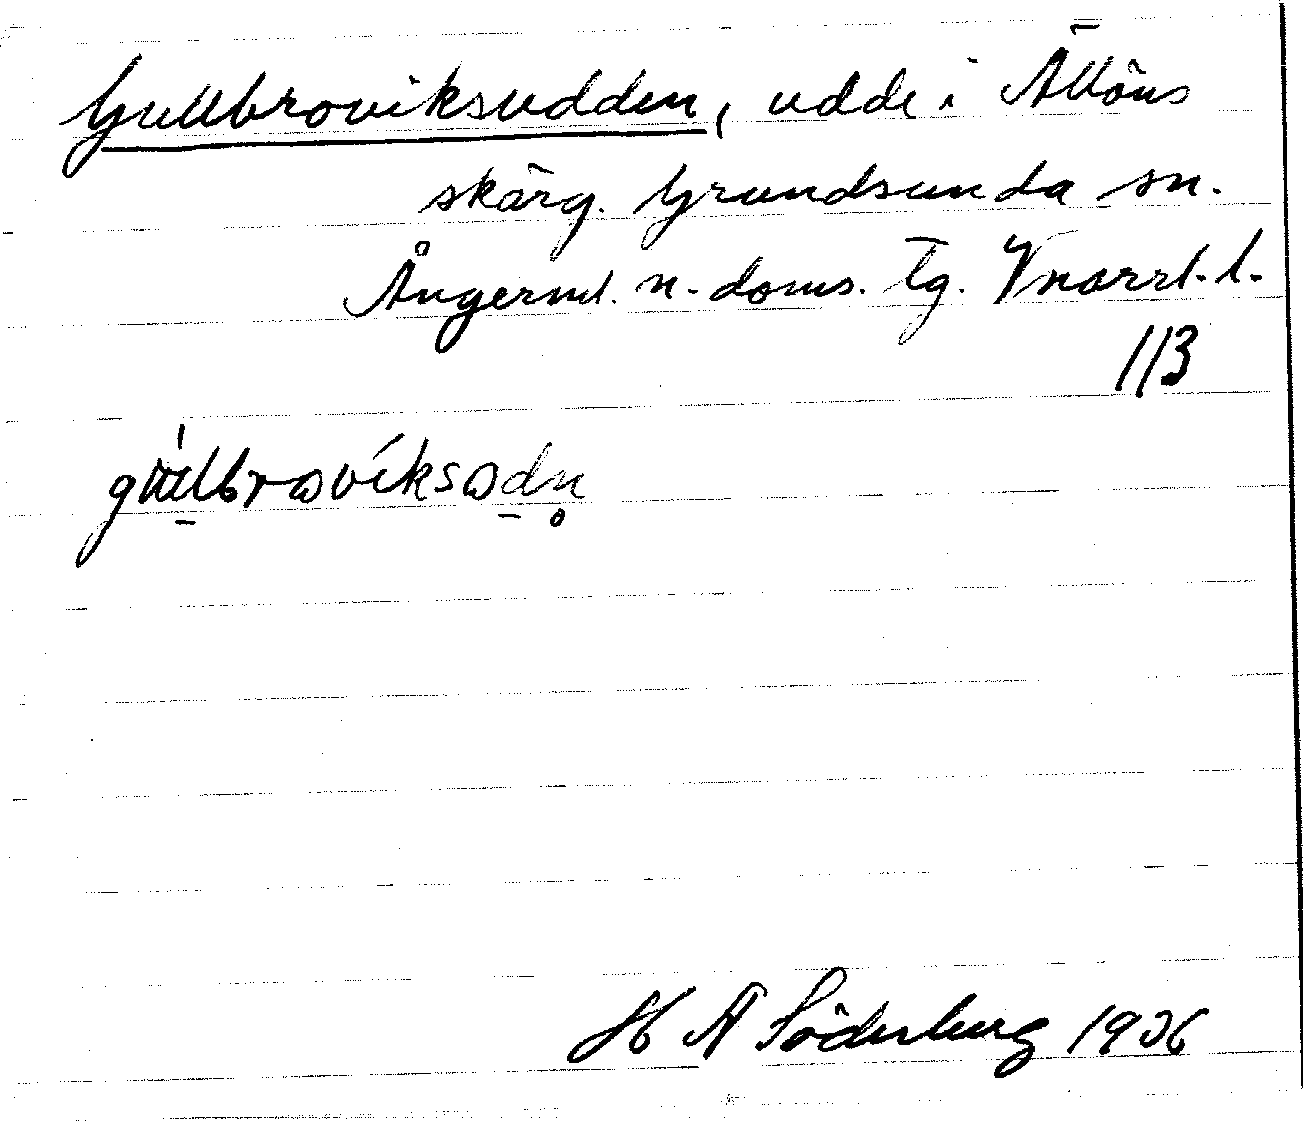 Gullbroviksudden, udde i Ällöns
skärg. Grundsunda sn.
Ångerml. n. doms. tg. Vnorrl. l.
113
gullbrωvíksωdn̥
H A Söderberg 1936